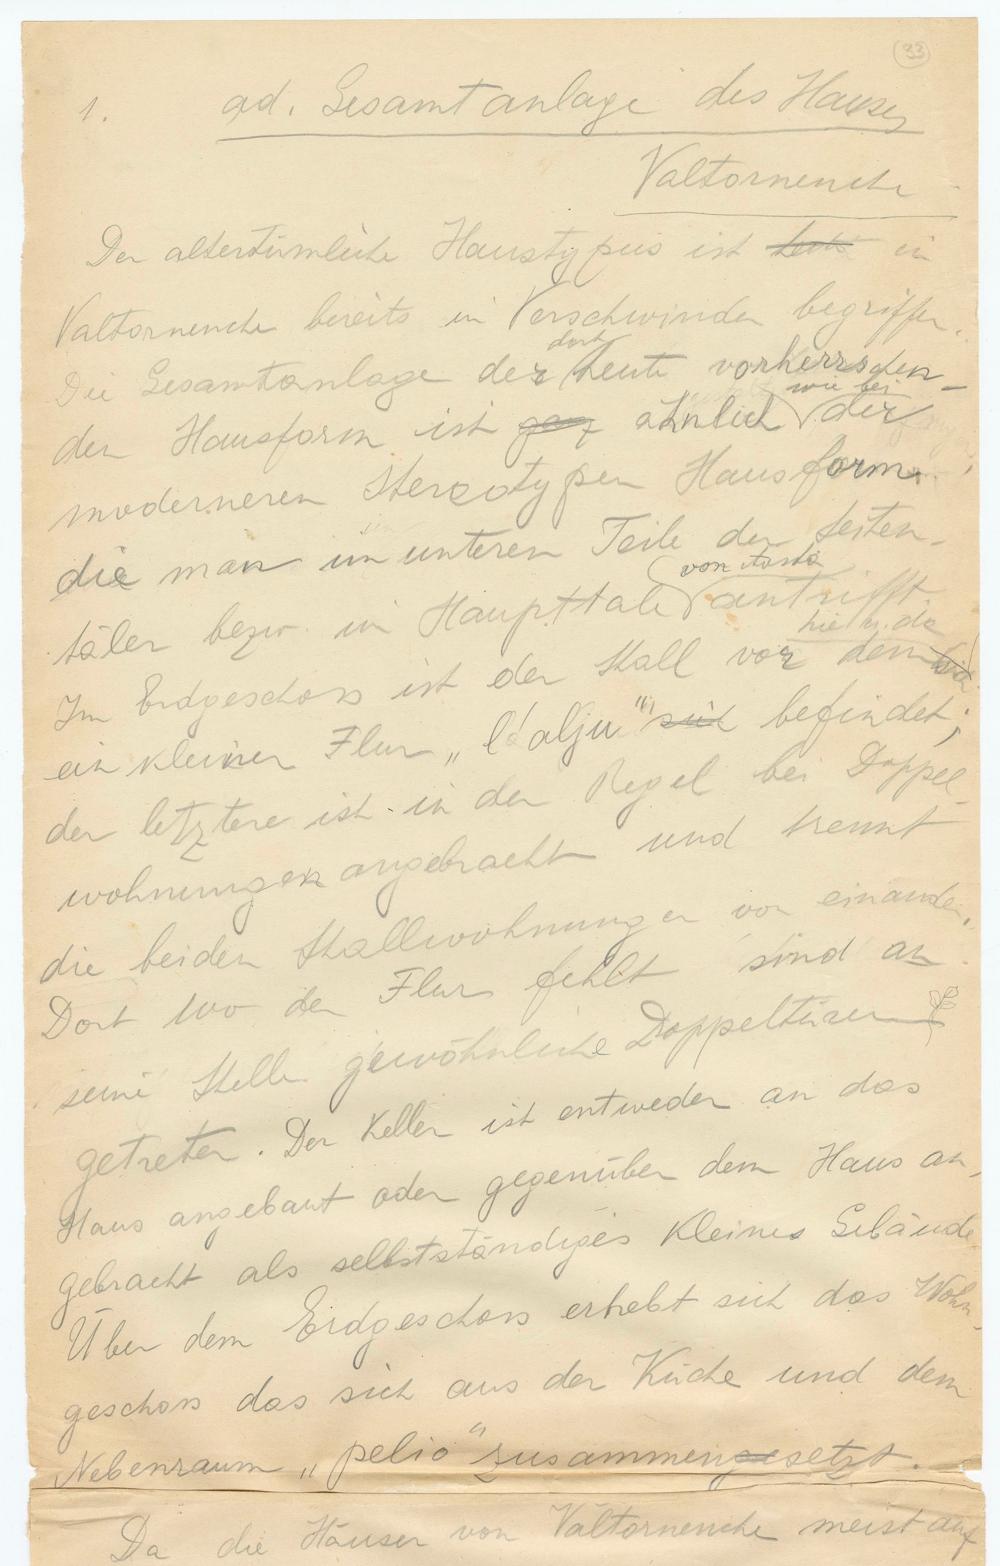 93
1. ad. Gesamtanlage des Hauses
Valtornenche
Der altertümliche Haustypus ist in
Valtornenche bereits in Verschwinden begriffen.
Die Gesamtanlage der dort heute vorherrschen-
den Hausform ist ganz ähnlich wie bei der
moderneren stereotypen Hausform
die man im unteren Teile der Seiten-
täler bezw. in Haupttale von Aosta antrifft.
Im Erdgeschoss ist der Stall vor dem hie u. da
ein kleiner Flur „l'alju" sich befindet;
der letztere ist in der Regel bei Doppel-
wohnungen angebracht und trennt
die beiden Stallwohnungen von einander.
Dort wo der Flur fehlt sind an
seine Stelle gewöhnliche Doppeltüren
getreten. Der Keller ist entweder an das
Haus angebaut oder gegenüber dem Haus an-
gebracht als selbstständiges kleines Gebäude
Über dem Erdgeschoss erhebt sich das Wohn-
geschoss das sich aus der Küche und dem
Nebenraum „pelio" zusammengesetzt.
Da die Häuser von Valtornenche meist auf